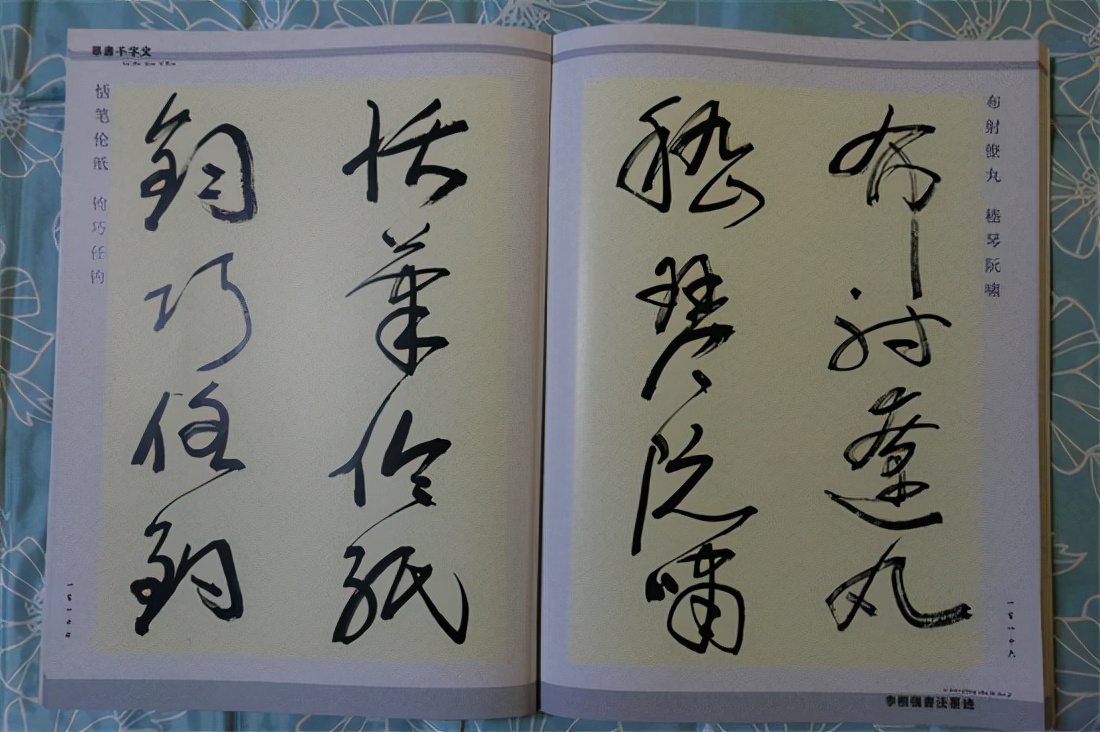 布射僚丸 嵇琴阮啸
布射遼丸
嵇琴阮嘯
恬筆倫紙
鈞巧任釣
恬笔伦纸 钧巧任钓
草書千字文